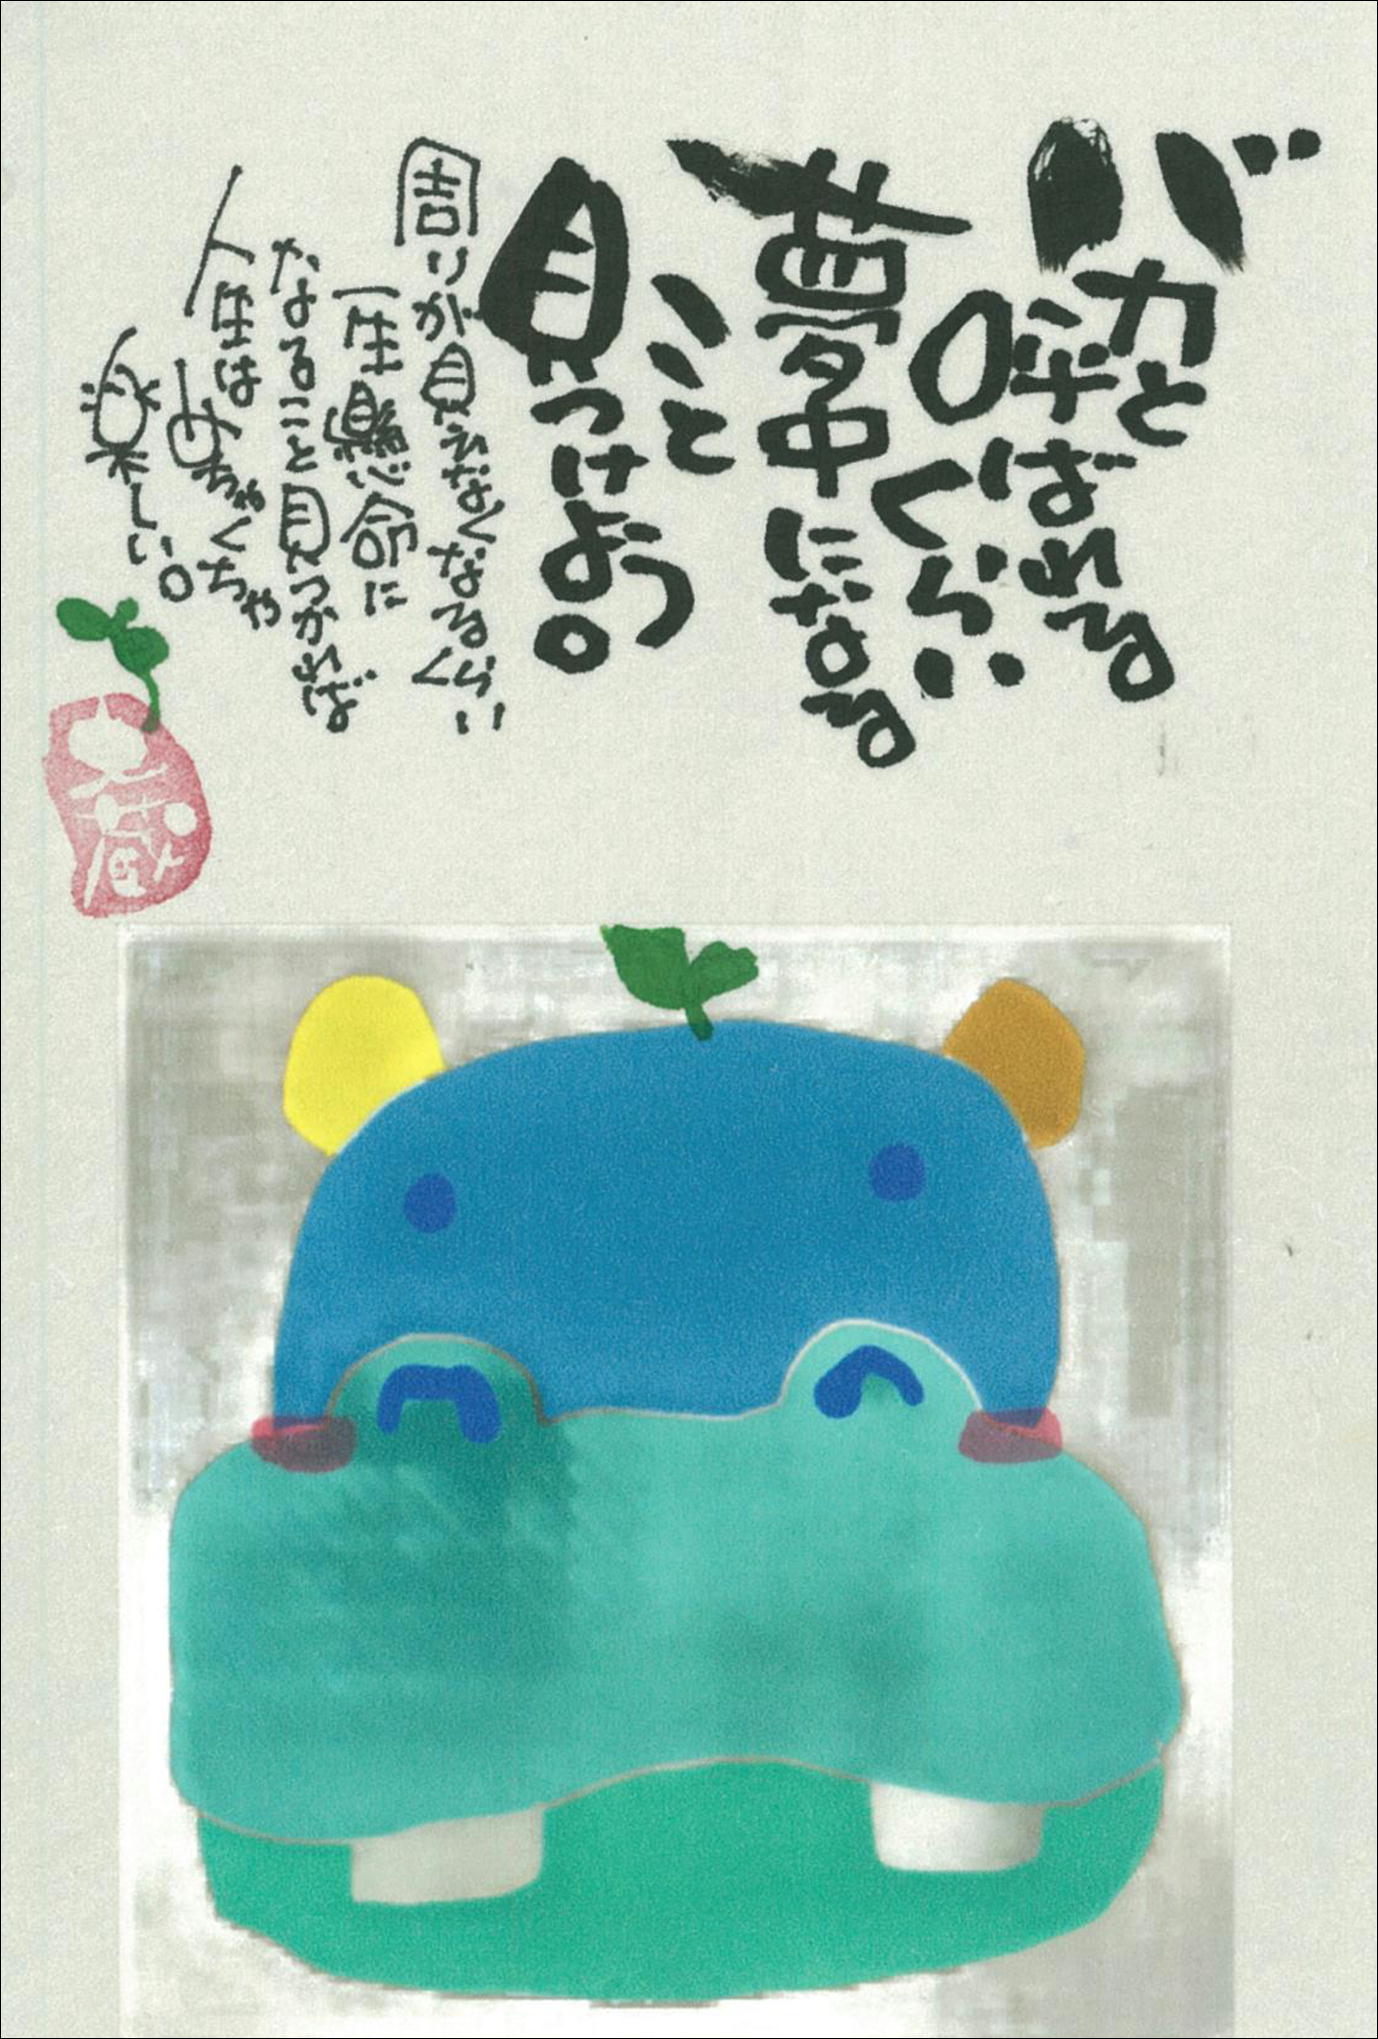 バカと
呼ばれる
くらい
夢中になる
こと
見つけよう。
周りが見えなくなるくらい
一生懸命に
なること見つかれば
人生は
めちゃくちゃ
楽しい。